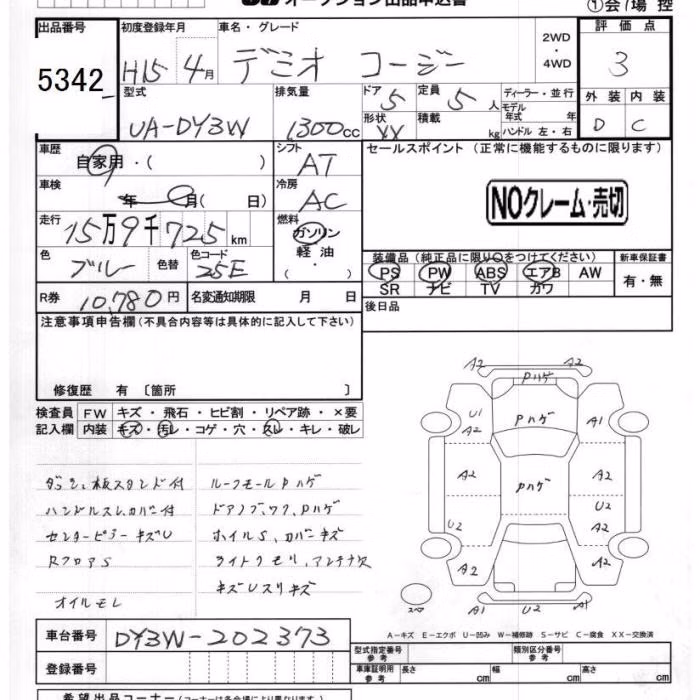 オークション出品申込書 ①会場 控
出品番号 初度登録年月 車名・グレード 2WD ・ 4WD 評価点
5342 H15 4月 デミオ コージー 3
型式 排気量 ドア 5 定員 5 人 ディーラー・並行 外装 内装
UA-DY3W 1300cc 形状 XX 積載 kg モデル年式 年式 D C
ハンドル 左・右
車歴 自家用・( ) シフト AT セールスポイント (正常に機能するものに限ります)
車検 年 月( 日) 冷房 AC NOクレーム・売切
走行 15万9千725km 燃料 ガソリン
軽油
・( )・
色 ブルー 色替 色コード 25E 装備品 (純正品に限り○をつけてください) 新車保証書
PS PW ABS エアB AW 有・無
SR ナビ TV カワ
R券 10,780円 名変通知期限 月 日 後日品
注意事項申告欄 (不具合内容等は具体的に記入して下さい)
修復歴 有 〔箇所 〕
検査員 FW キズ・飛石・ヒビ割・リペア跡・×要
記入欄 内装 キズ・汚レ・コゲ・穴・スレ・キレ・破レ
ダッシュ板スタンド付 ルーフモールPハゲ
ハンドルスレ、カバー付 ドアノブ、ワク、Pハゲ
センターピラーキズU ホイルS、カバーキズ
RフロアS ライトクモリ、アンテナ欠
キズUスリキズ
オイルモレ
A2 A2
Pハゲ
U1 Pハゲ A1
A2 Pハゲ A2
U2 U2
A2
A2 A2
A1 U2 A1
A-キズ E-エクボ U-凹み W-補修跡 S-サビ C-腐食 XX-交換済
車台番号 DY3W-202373 型式指定番号 参考 類別区分番号 参考
登録番号 車庫証明用 参考 長さ cm 幅 cm 高さ cm
希望出品コーナー